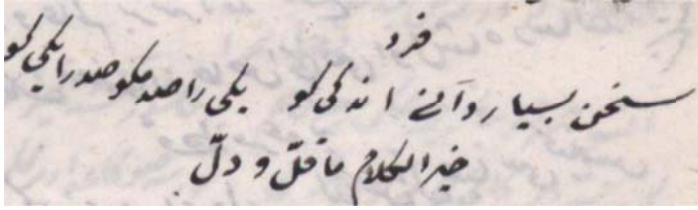 فرد
سخن بسیار دانے اندکی کو یکی را صد مکو صد را یکی کو
خیر الکلام ما قلّ و دلّ